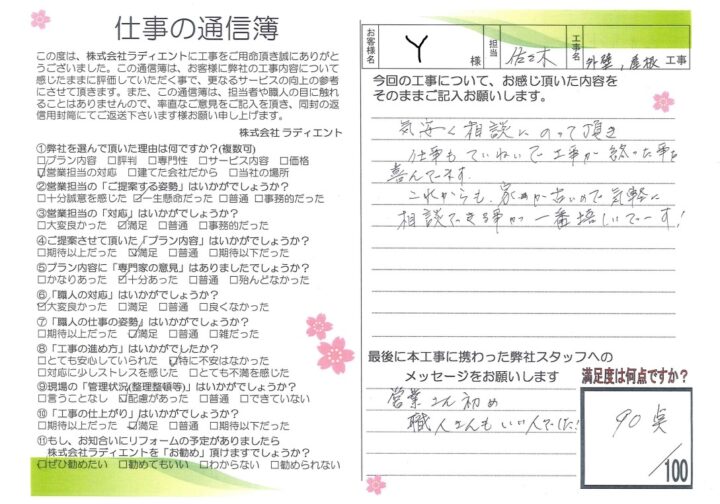 仕事の通信簿
この度は、株式会社ラディエントに工事をご用命頂き誠にありがと
うございました。この通信簿は、お客様に弊社の工事内容について
感じたままに評価していただく事で、更なるサービスの向上の参考
にさせて頂きます。また、この通信簿は、担当者や職人の目に触れ
ることはありませんので、率直なご意見をご記入を頂き、同封の返
信用封筒にてご返送下さいます様お願い申し上げます。
株式会社ラディエント
①弊社を選んで頂いた理由は何ですか?(複数可)
□プラン内容 □評判 □専門性 □サービス内容 □価格
☑営業担当の対応 □建てた会社だから □当社の場所
②営業担当の「ご提案する姿勢」はいかがでしょうか?
□十分誠意を感じた ☑一生懸命だった □普通 □事務的だった
③営業担当の「対応」はいかがでしょうか?
□大変良かった ☑満足 □普通 □事務的だった
④ご提案させて頂いた「プラン内容」はいかがでしょうか?
□期待以上だった ☑満足 □普通 □期待以下だった
⑤プラン内容に「専門家の意見」はありましたでしょうか?
□かなりあった ☑十分あった □普通 □殆んどなかった
⑥「職人の対応」はいかがでしょうか?
☑大変良かった □満足 □普通 □良くなかった
⑦「職人の仕事の姿勢」はいかがでしょうか?
□期待以上だった ☑満足 □普通 □雑だった
⑧「工事の進め方」はいかがでしたか?
□とても安心していられた ☑特に不安はなかった
□対応に少しストレスを感じた □とても不満を感じた
⑨現場の「管理状況(整理整頓等)」はいかがでしょうか?
□言うことなし ☑配慮があった □普通 □できていない
⑩「工事の仕上がり」はいかがでしょうか?
□期待以上だった ☑満足 □普通 □期待以下だった
⑪もし、お知合いにリフォームの予定がありましたら
株式会社ラディエントを「お勧め」頂けますでしょうか?
☑ぜひ勧めたい □勧めてもいい □わからない □勧められない
お客様名 Y 様 担当 佐々木 工事名 外壁,屋根 工事
今回の工事について、お感じ頂いた内容を
そのままご記入お願いします。
気安く相談にのって頂き
仕事もていねいで工事が終った事も
喜んでます。
これからも、家の古いので気軽に
相談できる事が一番嬉しいでーす!
最後に本工事に携わった弊社スタッフへの
メッセージをお願いします
営業さん初め
職人さんもいい人でした!
満足度は何点ですか?
90点
/100